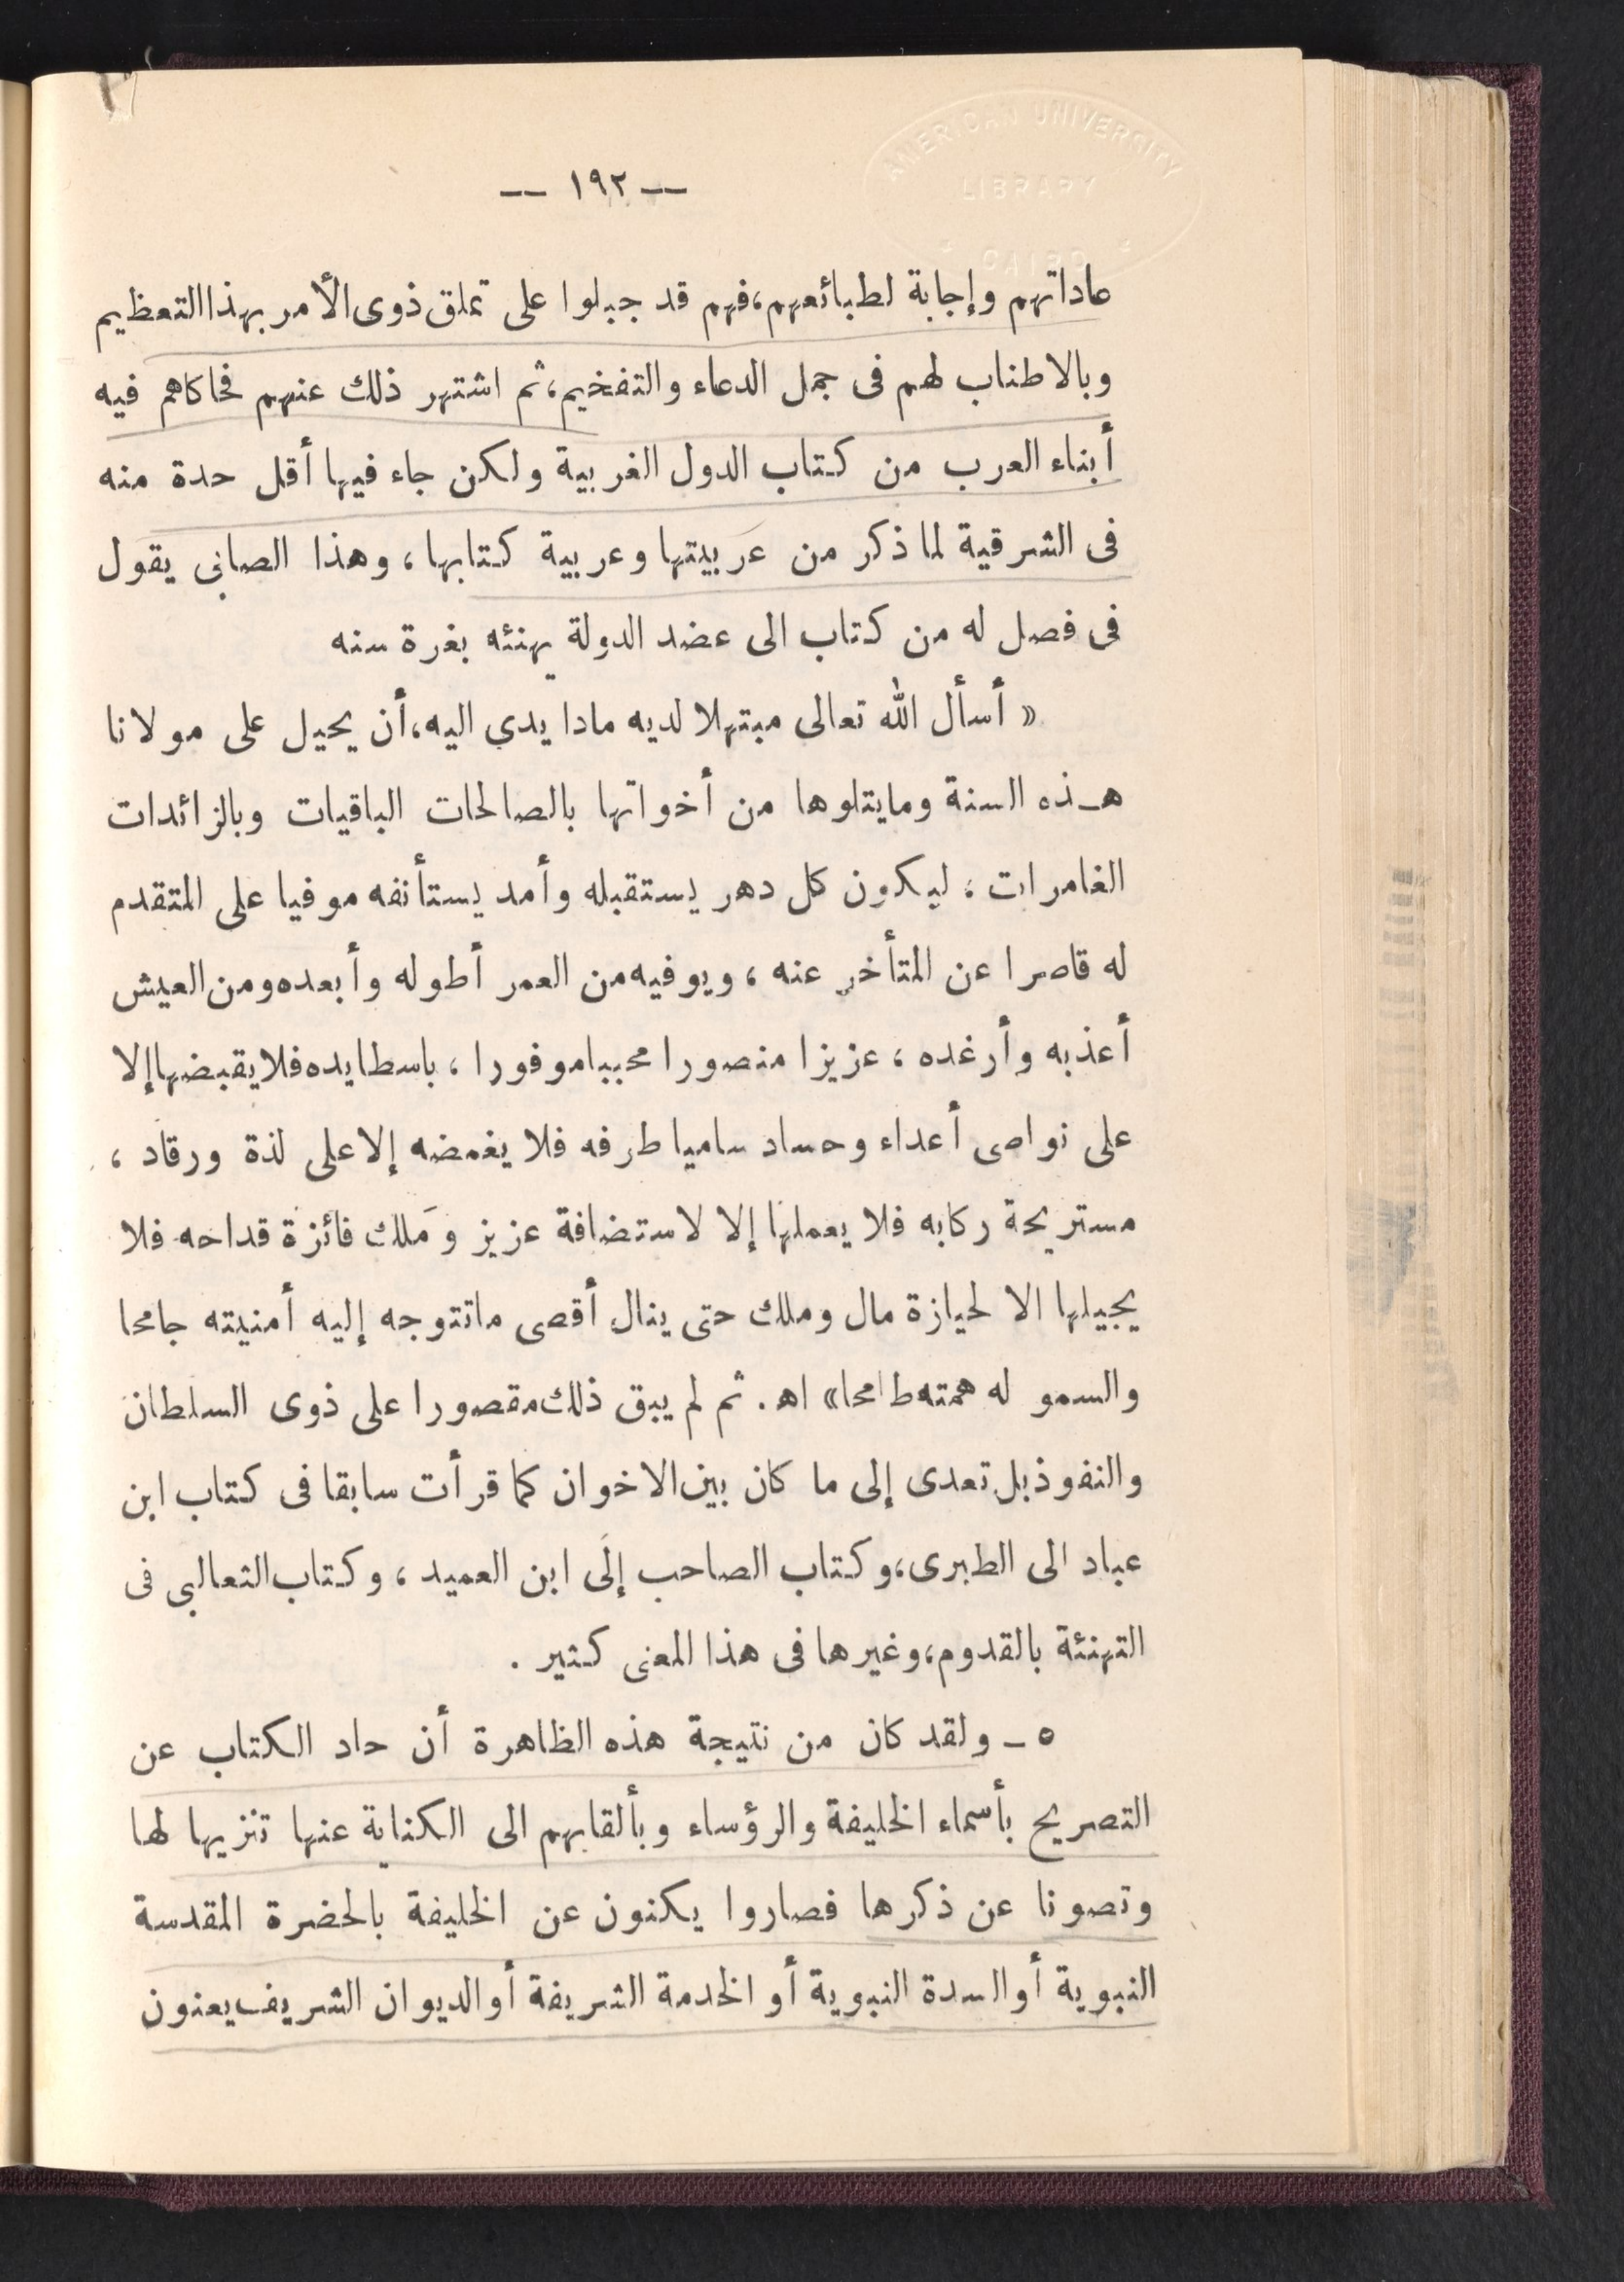 AMERICAN UNIVERSITY
LIBRARY
CAIRO
— ١٩٢ —
عاداتهم وإجابة لطبائعهم، فهم قد جبلوا على تملق ذوى الأمر بهذا التعظيم
وبالاطناب لهم فى جمل الدعاء والتفخيم، ثم اشتهر ذلك عنهم فحاكاهم فيه
أبناء العرب من كتاب الدول الغربية ولكن جاء فيها أقل حدة منه
فى الشرقية لما ذكر من عربيتها وعربية كتابها، وهذا الصابى يقول
فى فصل له من كتاب الى عضد الدولة يهنئه بغرة سنه
« أسأل الله تعالى مبتهلا لديه مادا يدى اليه، أن يحيل على مولانا
هذه السنة ومايتلوها من أخواتها بالصالحات الباقيات وبالزائدات
الغامرات، ليكون كل دهر يستقبله وأمد يستأنفه موفيا على المتقدم
له قاصرا عن المتأخر عنه، ويوفيه من العمر أطوله وأبعده ومن العيش
أعذبه وأرغده، عزيزا منصورا محببا موفورا، باسطا يده فلا يقبضها إلا
على نواصى أعداء وحساد ساميا طرفه فلا يغمضه إلا على لذة ورقاد،
مستريحة ركابه فلا يعملها إلا لاستضافة عزيز وملك فائزة قداحه فلا
يجيلها الا لحيازة مال وملك حتى ينال أقصى ماتتوجه إليه أمنيته جامحا
والسمو له همته طامحا» اهـ. ثم لم يبق ذلك مقصورا على ذوى السلطان
والنفوذ بل تعدى إلى ما كان بين الاخوان كما قرأت سابقا فى كتاب ابن
عباد الى الطبرى، وكتاب الصاحب إلى ابن العميد، وكتاب الثعالبى فى
التهنئة بالقدوم، وغيرها فى هذا المعنى كثير.
٥ ـ ولقد كان من نتيجة هذه الظاهرة أن حاد الكتاب عن
التصريح بأسماء الخليفة والرؤساء وبألقابهم الى الكناية عنها تنزيها لها
وتصونا عن ذكرها فصاروا يكنون عن الخليفة بالحضرة المقدسة
النبوية أو السدة النبوية أو الخدمة الشريفة أو الديوان الشريف يعنون